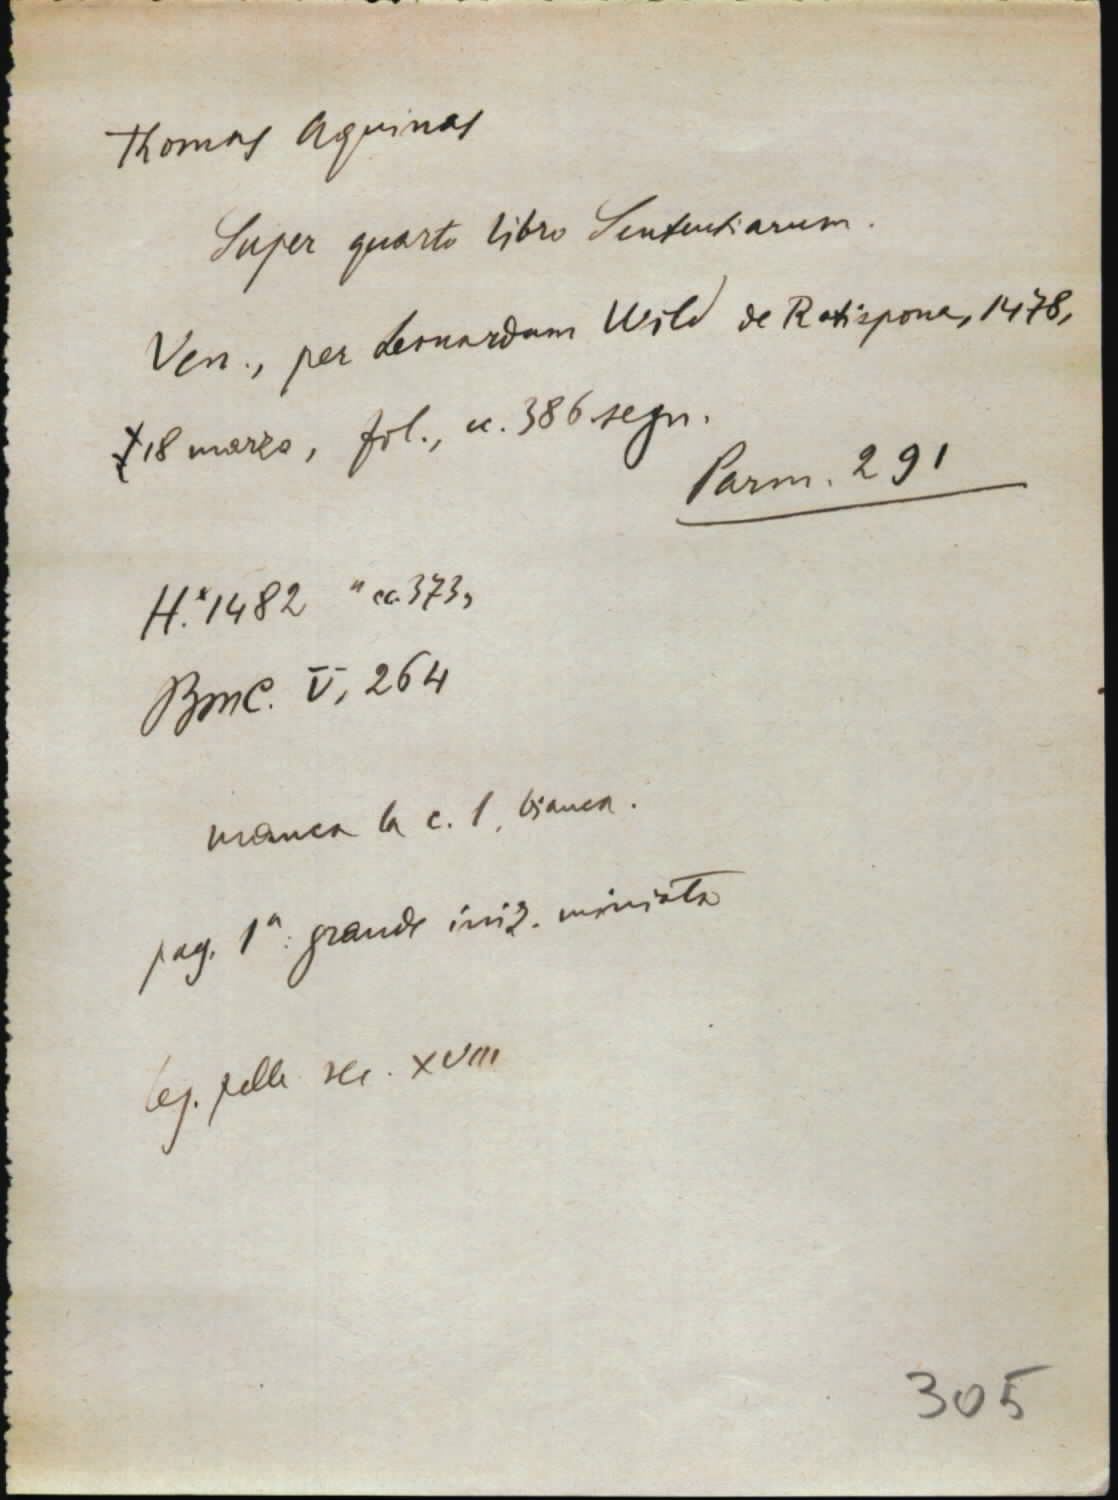 Thomas Aquinas
Super quarto libro Sententiarum.
Ven., per Leonardum Wild de Ratispona, 1478,
18 marzo, fol., cc. 386 segn.
Parm. 291
H.*1482 "cc. 373„
BMC. V, 264
manca la c. 1, bianca.
pag. 1ª: grande iniz. miniata
leg. pelle sec. XVIII
305